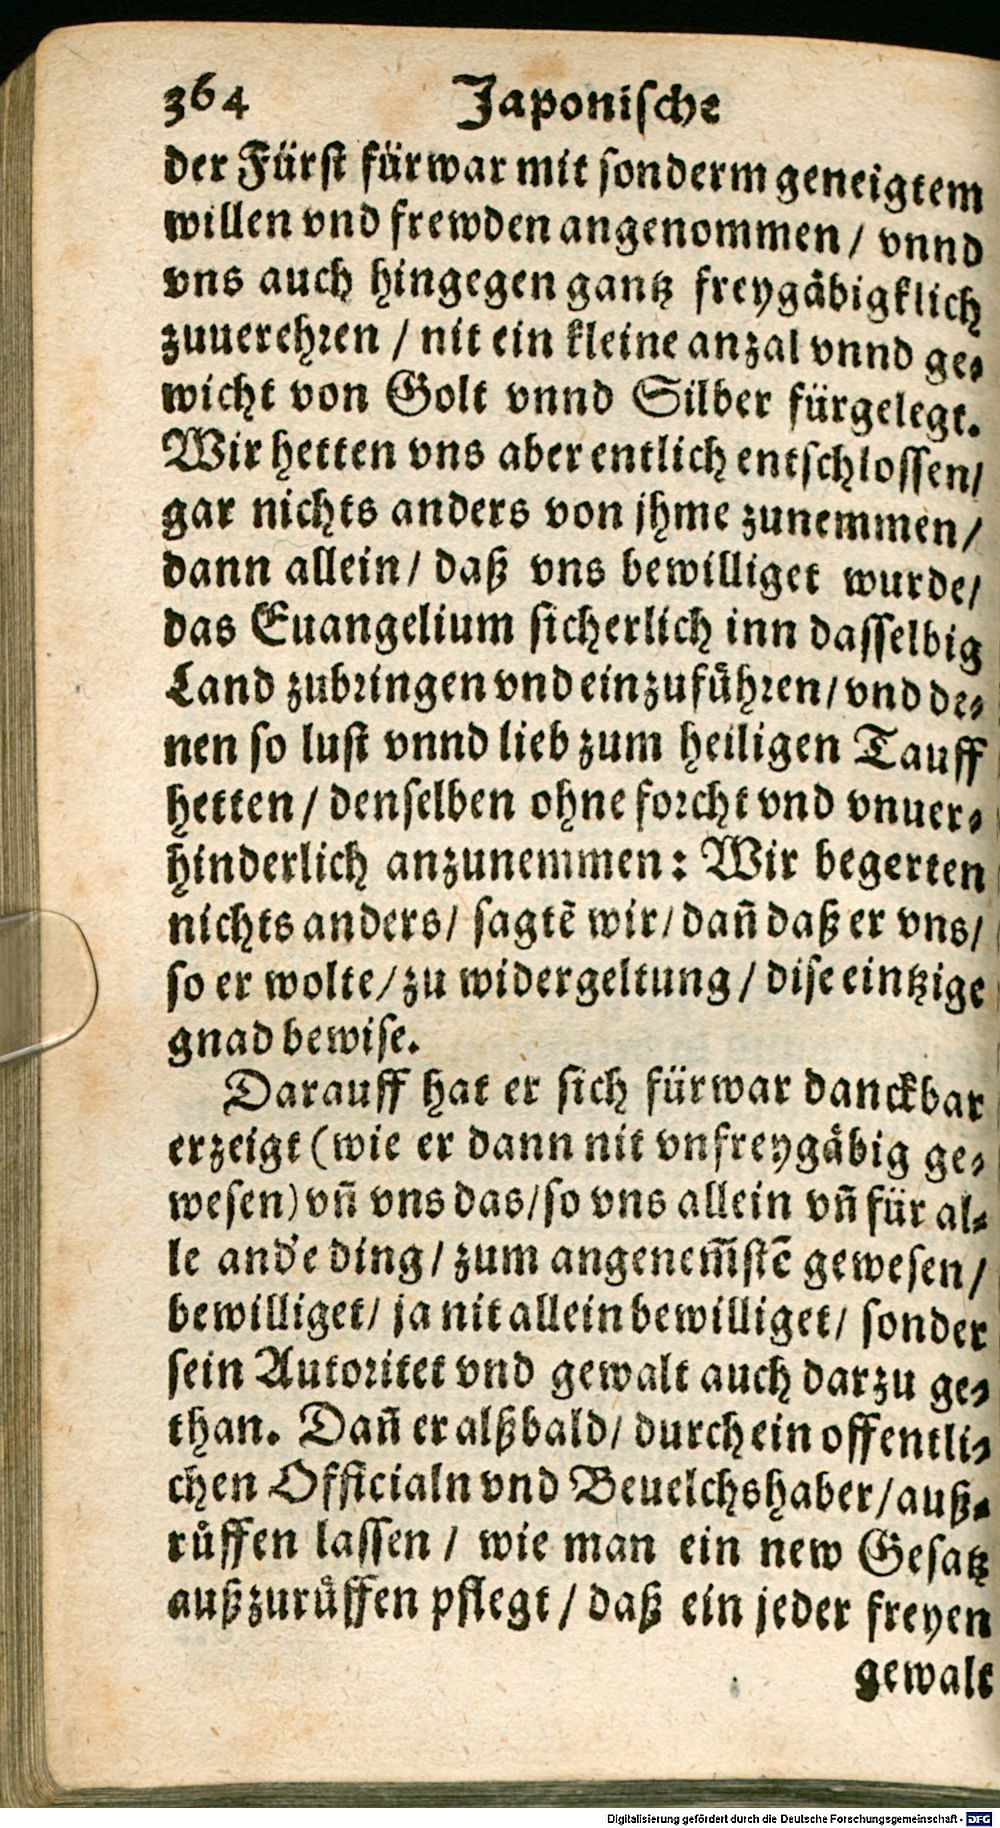 364 Japonische
der Fürst fürwar mit sonderm geneigtem
willen vnd frewden angenommen / vnnd
vns auch hingegen gantz freygäbigklich
zuuerehren / nit ein kleine anzal vnnd ge-
wicht von Golt vnnd Silber fürgelegt.
Wir hetten vns aber entlich entschlossen/
gar nichts anders von jhme zunemmen/
dann allein/ daß vns bewilliget wurde/
das Euangelium sicherlich inn dasselbig
Land zubringen vnd einzuführen/ vnd de-
nen so lust vnnd lieb zum heiligen Tauff
hetten/ denselben ohne forcht vnd vnuer-
hinderlich anzunemmen: Wir begerten
nichts anders/ sagtē wir/ dañ daß er vns/
so er wolte/ zu widergeltung/ dise eintzige
gnad bewise.
Darauff hat er sich fürwar danckbar
erzeigt (wie er dann nit vnfreygäbig ge-
wesen) vñ vns das/ so vns allein vñ für al-
le and'e ding/ zum angenem̄stē gewesen/
bewilliget/ ja nit allein bewilliget/ sonder
sein Autoritet vnd gewalt auch darzu ge-
than. Dañ er alßbald/ durch ein offentli-
chen Officialn vnd Beuelchshaber/ auß-
růffen lassen / wie man ein new Gesatz
außzurůffen pflegt / daß ein jeder freyen
gewalt
Digitalisierung gefördert durch die Deutsche Forschungsgemeinschaft - DFG